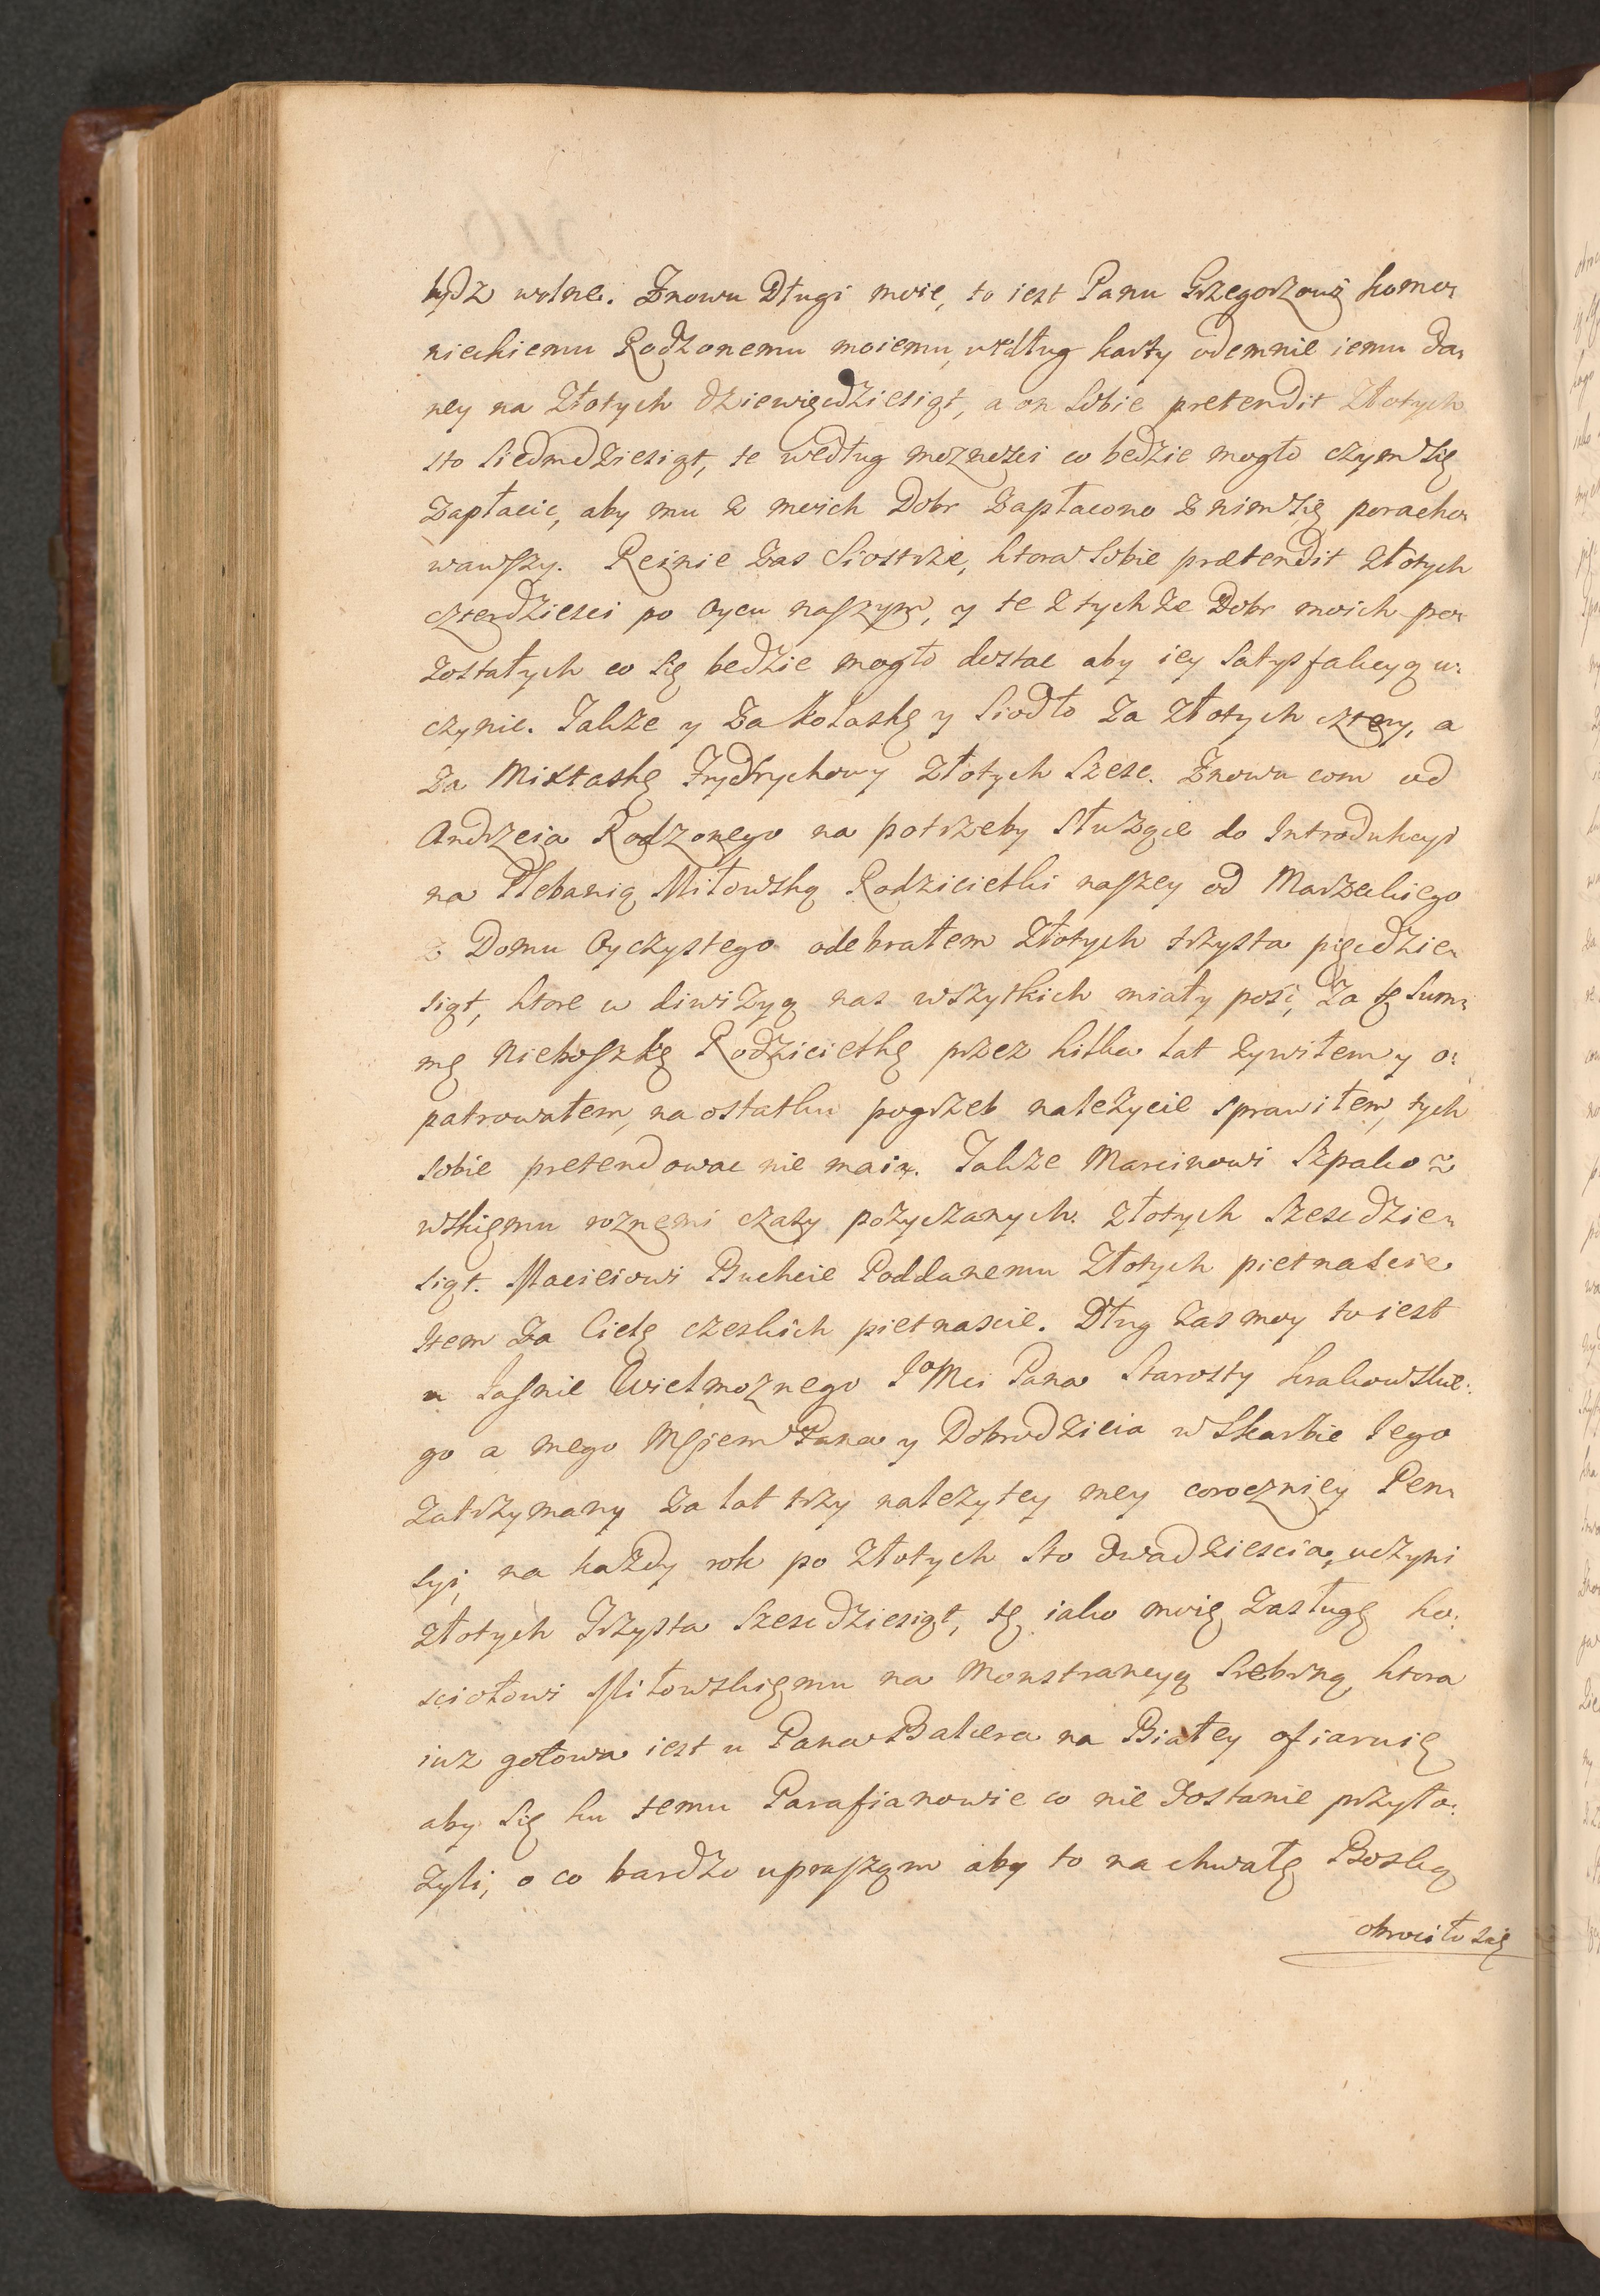 bydz wolne. Znowu Długi moie, to iest Panu Grzegorzowi komor
nickiemu Rodzonemu moiemu, według karty odemnie iemu da,
ney na Złotych dziewięcdziesiąt, a on sobie pretendit Złotych
sto siedmdziesiąt, te według moznosci co bedzie mogło czym się
Zapłacic, aby mu z moich Dobr Zapłacono z nim się poracho,
wawszy. Reinie Zas Siostrze, ktora sobie prætendit Złotych
czterdziesci po oycu naszym, y te z tychze Dobr moich po,
zostałych co się bedzie mogło dostac aby iey satysfakcyą u:
czynic. Takze y Za kolaskę y siodło Za Złotych cztery, a
Za Mixtaskę Frydrychowy Złotych szesc. Znowu com od
Andrzeia Rodzonego na potrzeby słuzące do Introdukcyi
na Plebanią Miłowską Rodzicielki naszey od Marzeckiego
z Domu Oyczystego odebrałem Złotych trzysta pięcdzie,
siąt, ktore w diwizyą nas wszytkich miały pość, Za tę sum,
mę Nieboszkę Rodzicielkę przez kilka lat zywiłem y o:
patrowałem, na ostatku pogrzeb nalezycie sprawiłem, tych
sobie pretendowac nie maią. Takze Marcinowi Szpako=
wskiemu roznemi czasy pozyczanych Złotych szescdzie,
siąt. Macieiowi Buchcie Poddanemu Złotych pietnascie
Item Za Cielę czeskich pietnascie. Dług Zas moy to iest
u Jasnie Wielmoznego JoMci Pana Starosty krakowskie:
go a mego Mscem Pana y Dobrodzieia w Skarbie Jego
Zatrzymany Za lat trzy nalezytey mey coroczniey Pen,
syi, na kazdy rok po Złotych sto dwadziescia, uczyni
Złotych Trzysta szescdziesiąt, tę iako moię Zasługę ko:
sciołowi Miłowskiemu na Monstrancyą srebrną, ktora
iuz gotowa iest u Pana Bakera na Białey ofiaruię
aby się ku temu Parafianowie co nie dostanie przyło:
zyli, o co bardzo upraszam aby to na chwałę Boską
obrociło się